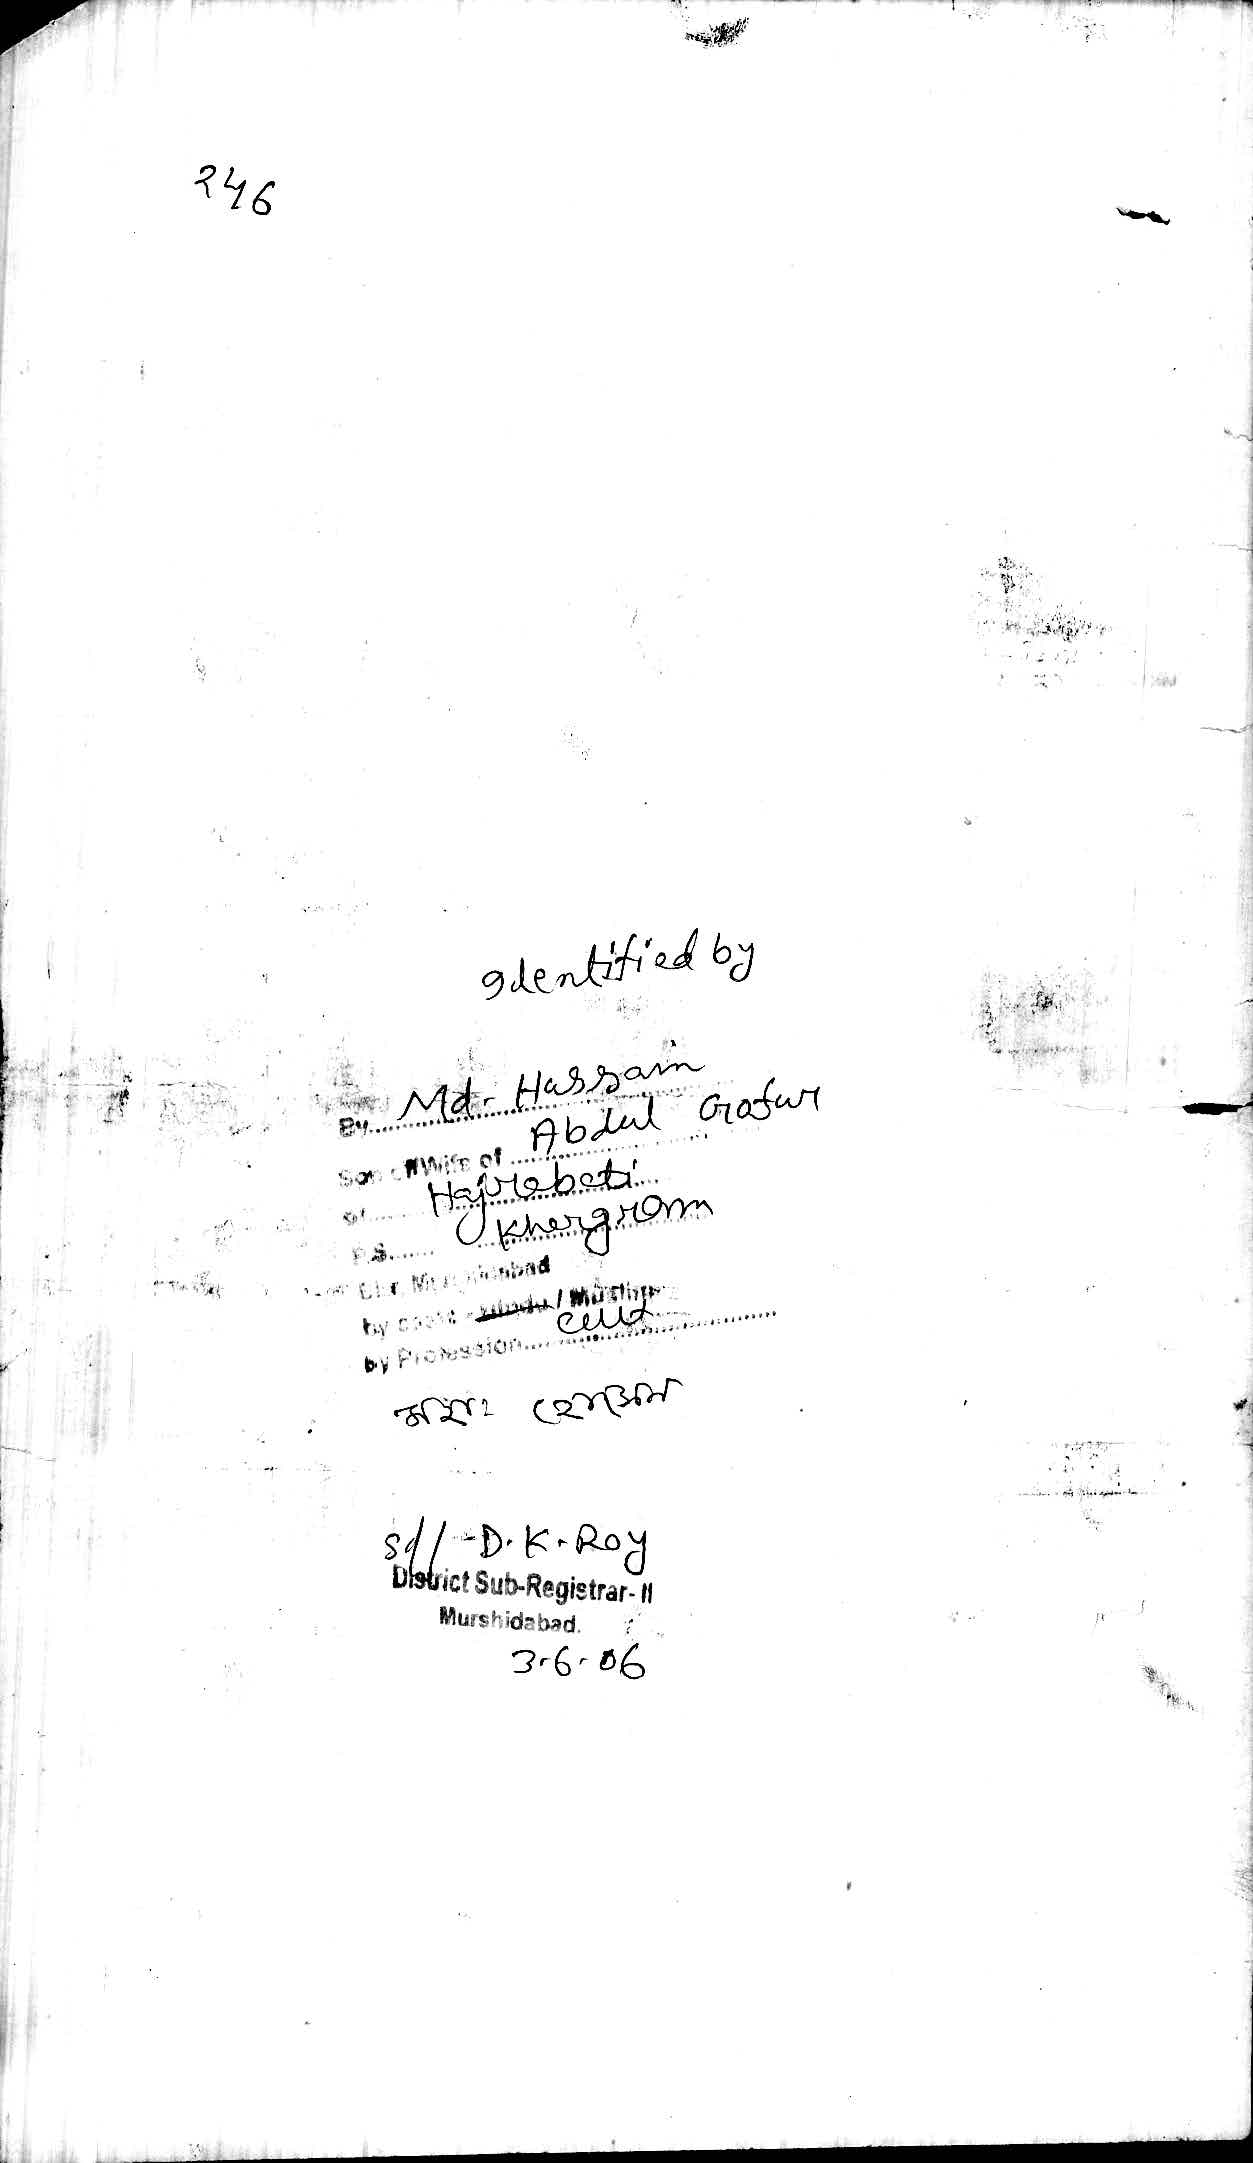 246
Identified by
By Md. Hassain
Son of/Wife of Abdul Gafur
of Hajrabati
P.S. Khargram
Dist. Murshidabad
by caste Hindu / Muslim
by Profession Cult
মহাঃ হোসেন
Sd/- D. K. Roy
District Sub-Registrar-II
Murshidabad.
3.6.06